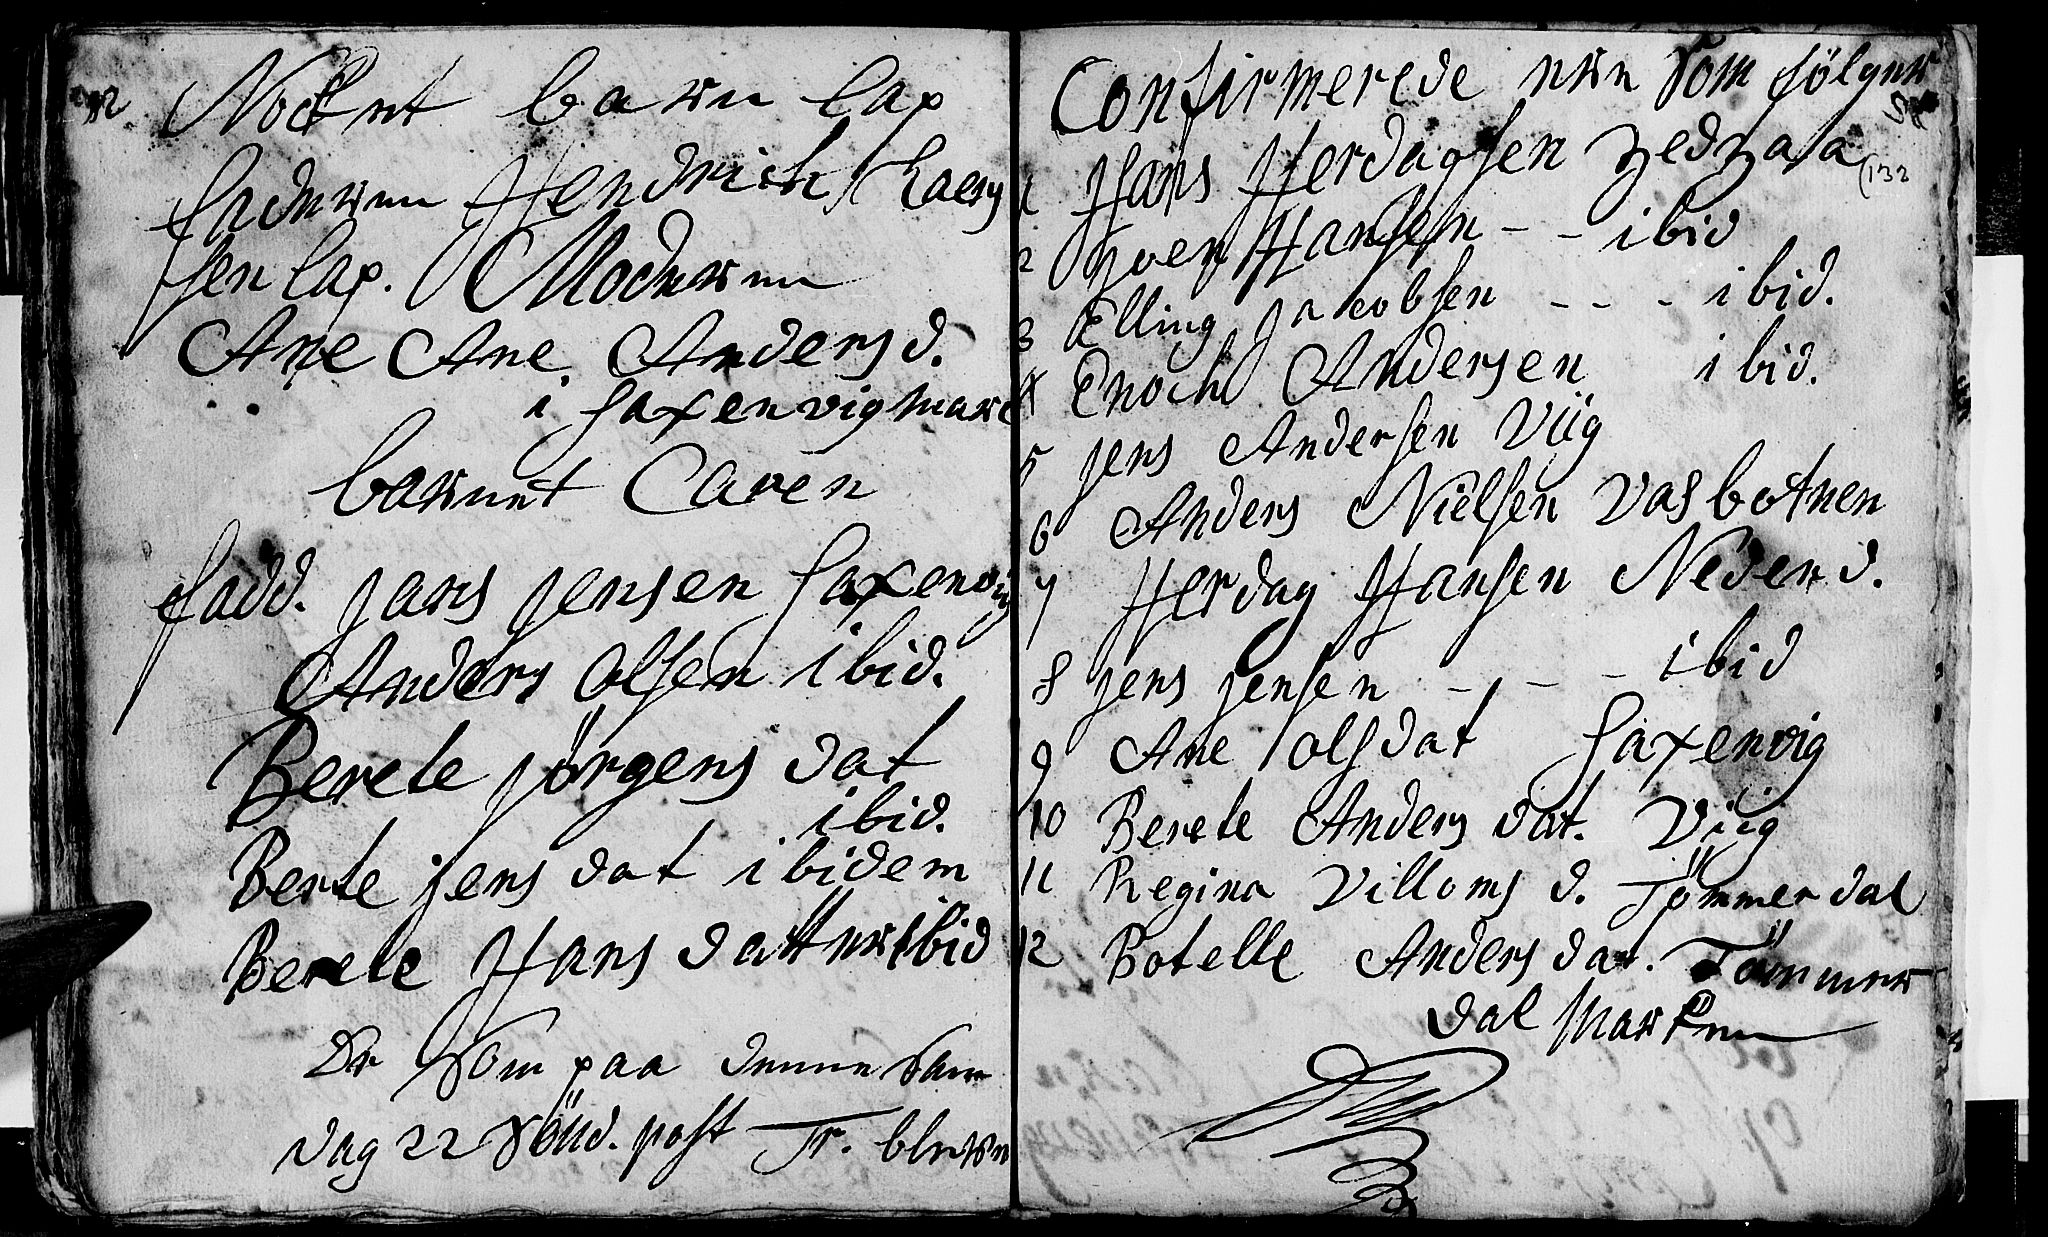 Nock et barn lap
faderen Hendrich Laers
sen lap. Moderen
Ane Ane Andersd.
i Saxenvigmarc
barnet Caren
fadd. Jans Jensen Saxenvig
Anders Olsen ibid.
Berete Jørgens dat
ibid.
Berte Jens dat ibidem
Berete Hans datter ibid
De Som paa denne Sam
dag 22 Sönd. post Tr. blewen
Confirmerede ere Som fölger
132
1 Hans Herdagsen
2 Joen Hansen - - ibid
3 Elling Jacobsen - - - ibid.
4 Enoch Andersen ibid.
5 Jens Andersen Viig
6 Anders Nielsen Vasbotnen
7 Herdag Hansen Neder d.
8 Jens Jensen - - - - ibid
9 Ane Olsdat Saxenvig
10 Berete Anders dat. Viig
11 Regina Villoms d. Tömmerdal
12 Botelle Anders dat. Tömmer
dal Marken